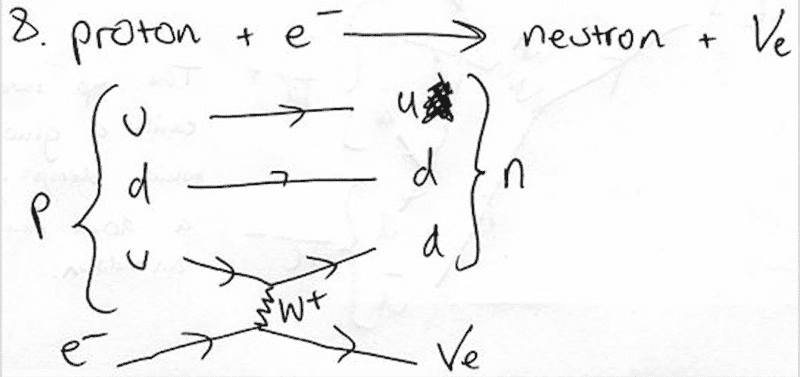 8. proton + e⁻ → neutron + Ve
u u
d d
P n
u d
W+
e⁻ Ve